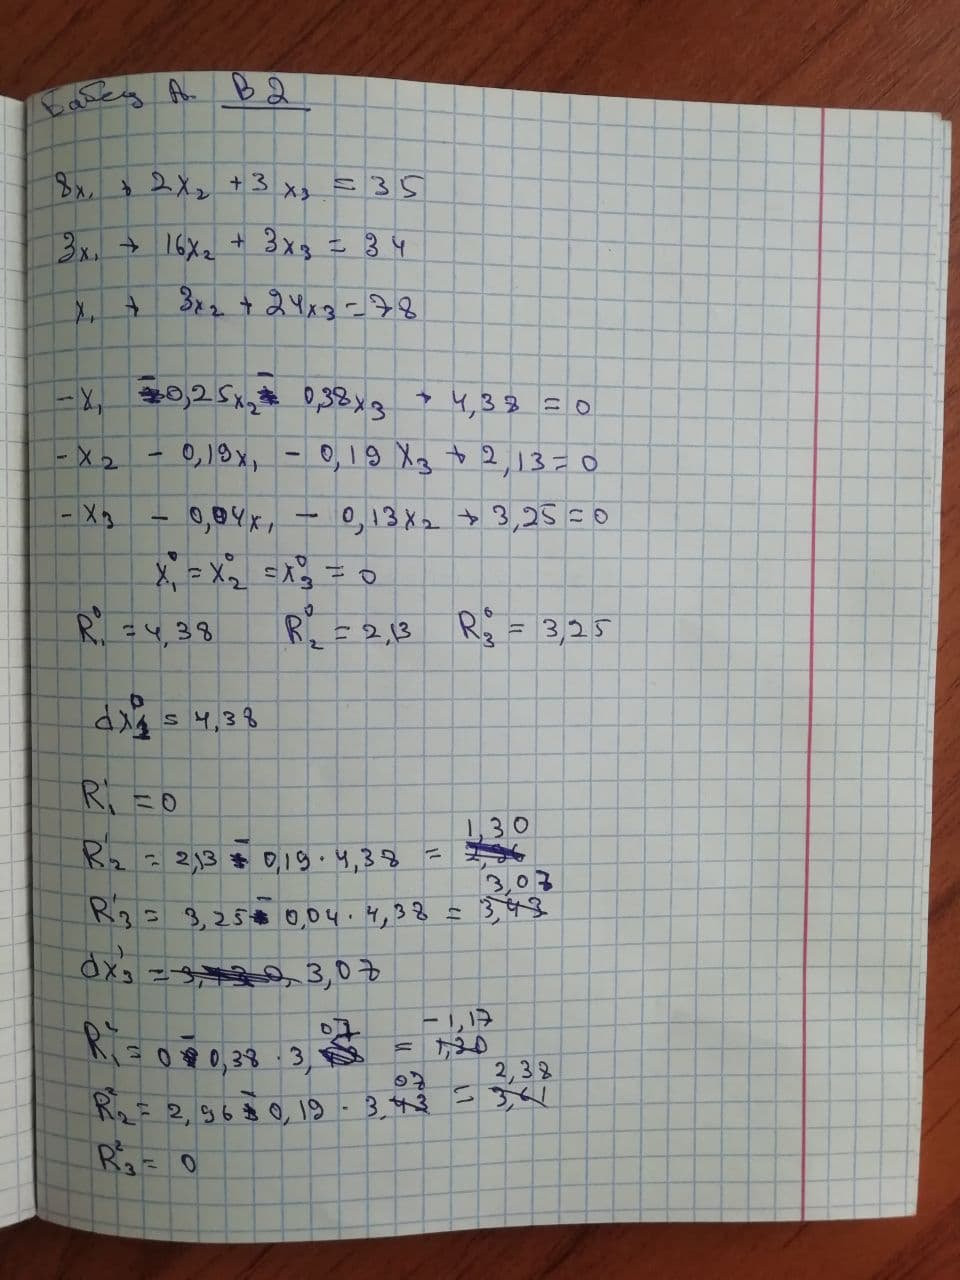 Бабец А. В2
8x₁ + 2x₂ + 3x₃ = 35
3x₁ + 16x₂ + 3x₃ = 34
x₁ + 3x₂ + 24x₃ = 78
-x₁ - 0,25x₂ - 0,38x₃ + 4,38 = 0
-x₂ - 0,19x₁ - 0,19x₃ + 2,13 = 0
-x₃ - 0,04x₁ - 0,13x₂ + 3,25 = 0
x₁⁰ = x₂⁰ = x₃⁰ = 0
R₁⁰ = 4,38 R₂⁰ = 2,13 R₃⁰ = 3,25
dx₁⁰ = 4,38
R₁¹ = 0
R₂¹ = 2,13 - 0,19 · 4,38 = 1,30
R₃¹ = 3,25 - 0,04 · 4,38 = 3,07
dx₃¹ = 3,07
R₁² = 0 - 0,38 · 3,07 = -1,17
R₂² = 2,96 - 0,19 · 3,07 = 2,38
R₃² = 0